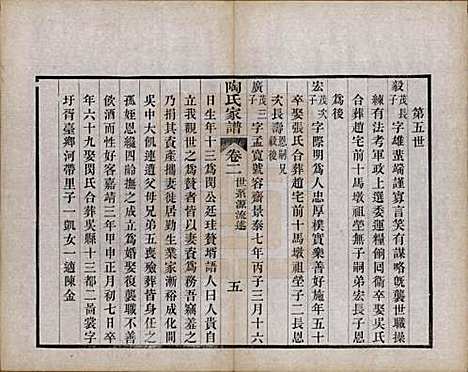 第五世
毅 茂長子 字雄蜚端謹寡言笑有謀略旣襲世職操
練有法考軍政上選委運糧俱卒娶吳氏
合葬趙宅前十馬墩祖塋子無子嗣弟宏長子恩
爲後
宏 茂次子 字際明爲人忠厚樸實樂善好施年五十
卒娶張氏合葬趙宅前十馬墩祖塋子二長恩
次長壽 恩嗣兄
陶氏家譜 卷二 世系源流述 五
廣 茂三子 字孟寬號容齋景泰七年丙子三月十六
日生年十三爲閔公廷珪贅壻語人曰人貴自
立我觀世人娶妻以資產爲贅爲務吾竊羞之
乃捐其資產攜妻徙居勤生業家漸裕成化間
吳中大飢連遭父母兄弟五喪殮葬皆身任之
孤姪恩纔四齡撫之成立爲婚娶復襲職不善
飲酒而好客嘉靖三年甲申正月初七日卒
年六十九娶閔氏合葬吳縣十三都二啚裳字
圩胥臺鄉河帶里子一凱女一適陳金